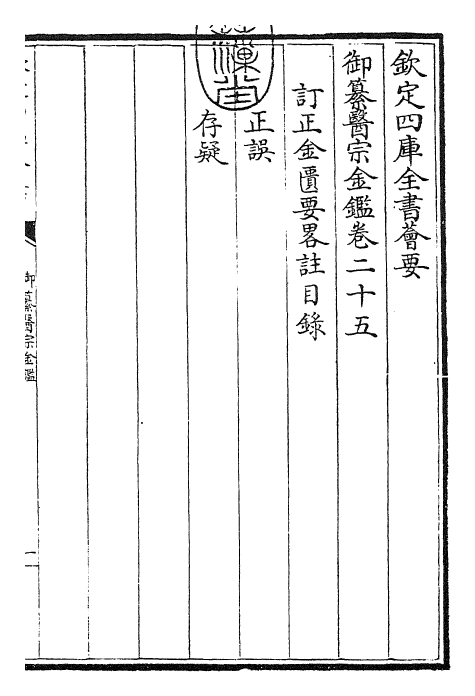 欽定四庫全書薈要
御纂醫宗金鑑卷二十五
訂正金匱要畧註目錄
正誤
存疑
御纂醫宗金鑑
一